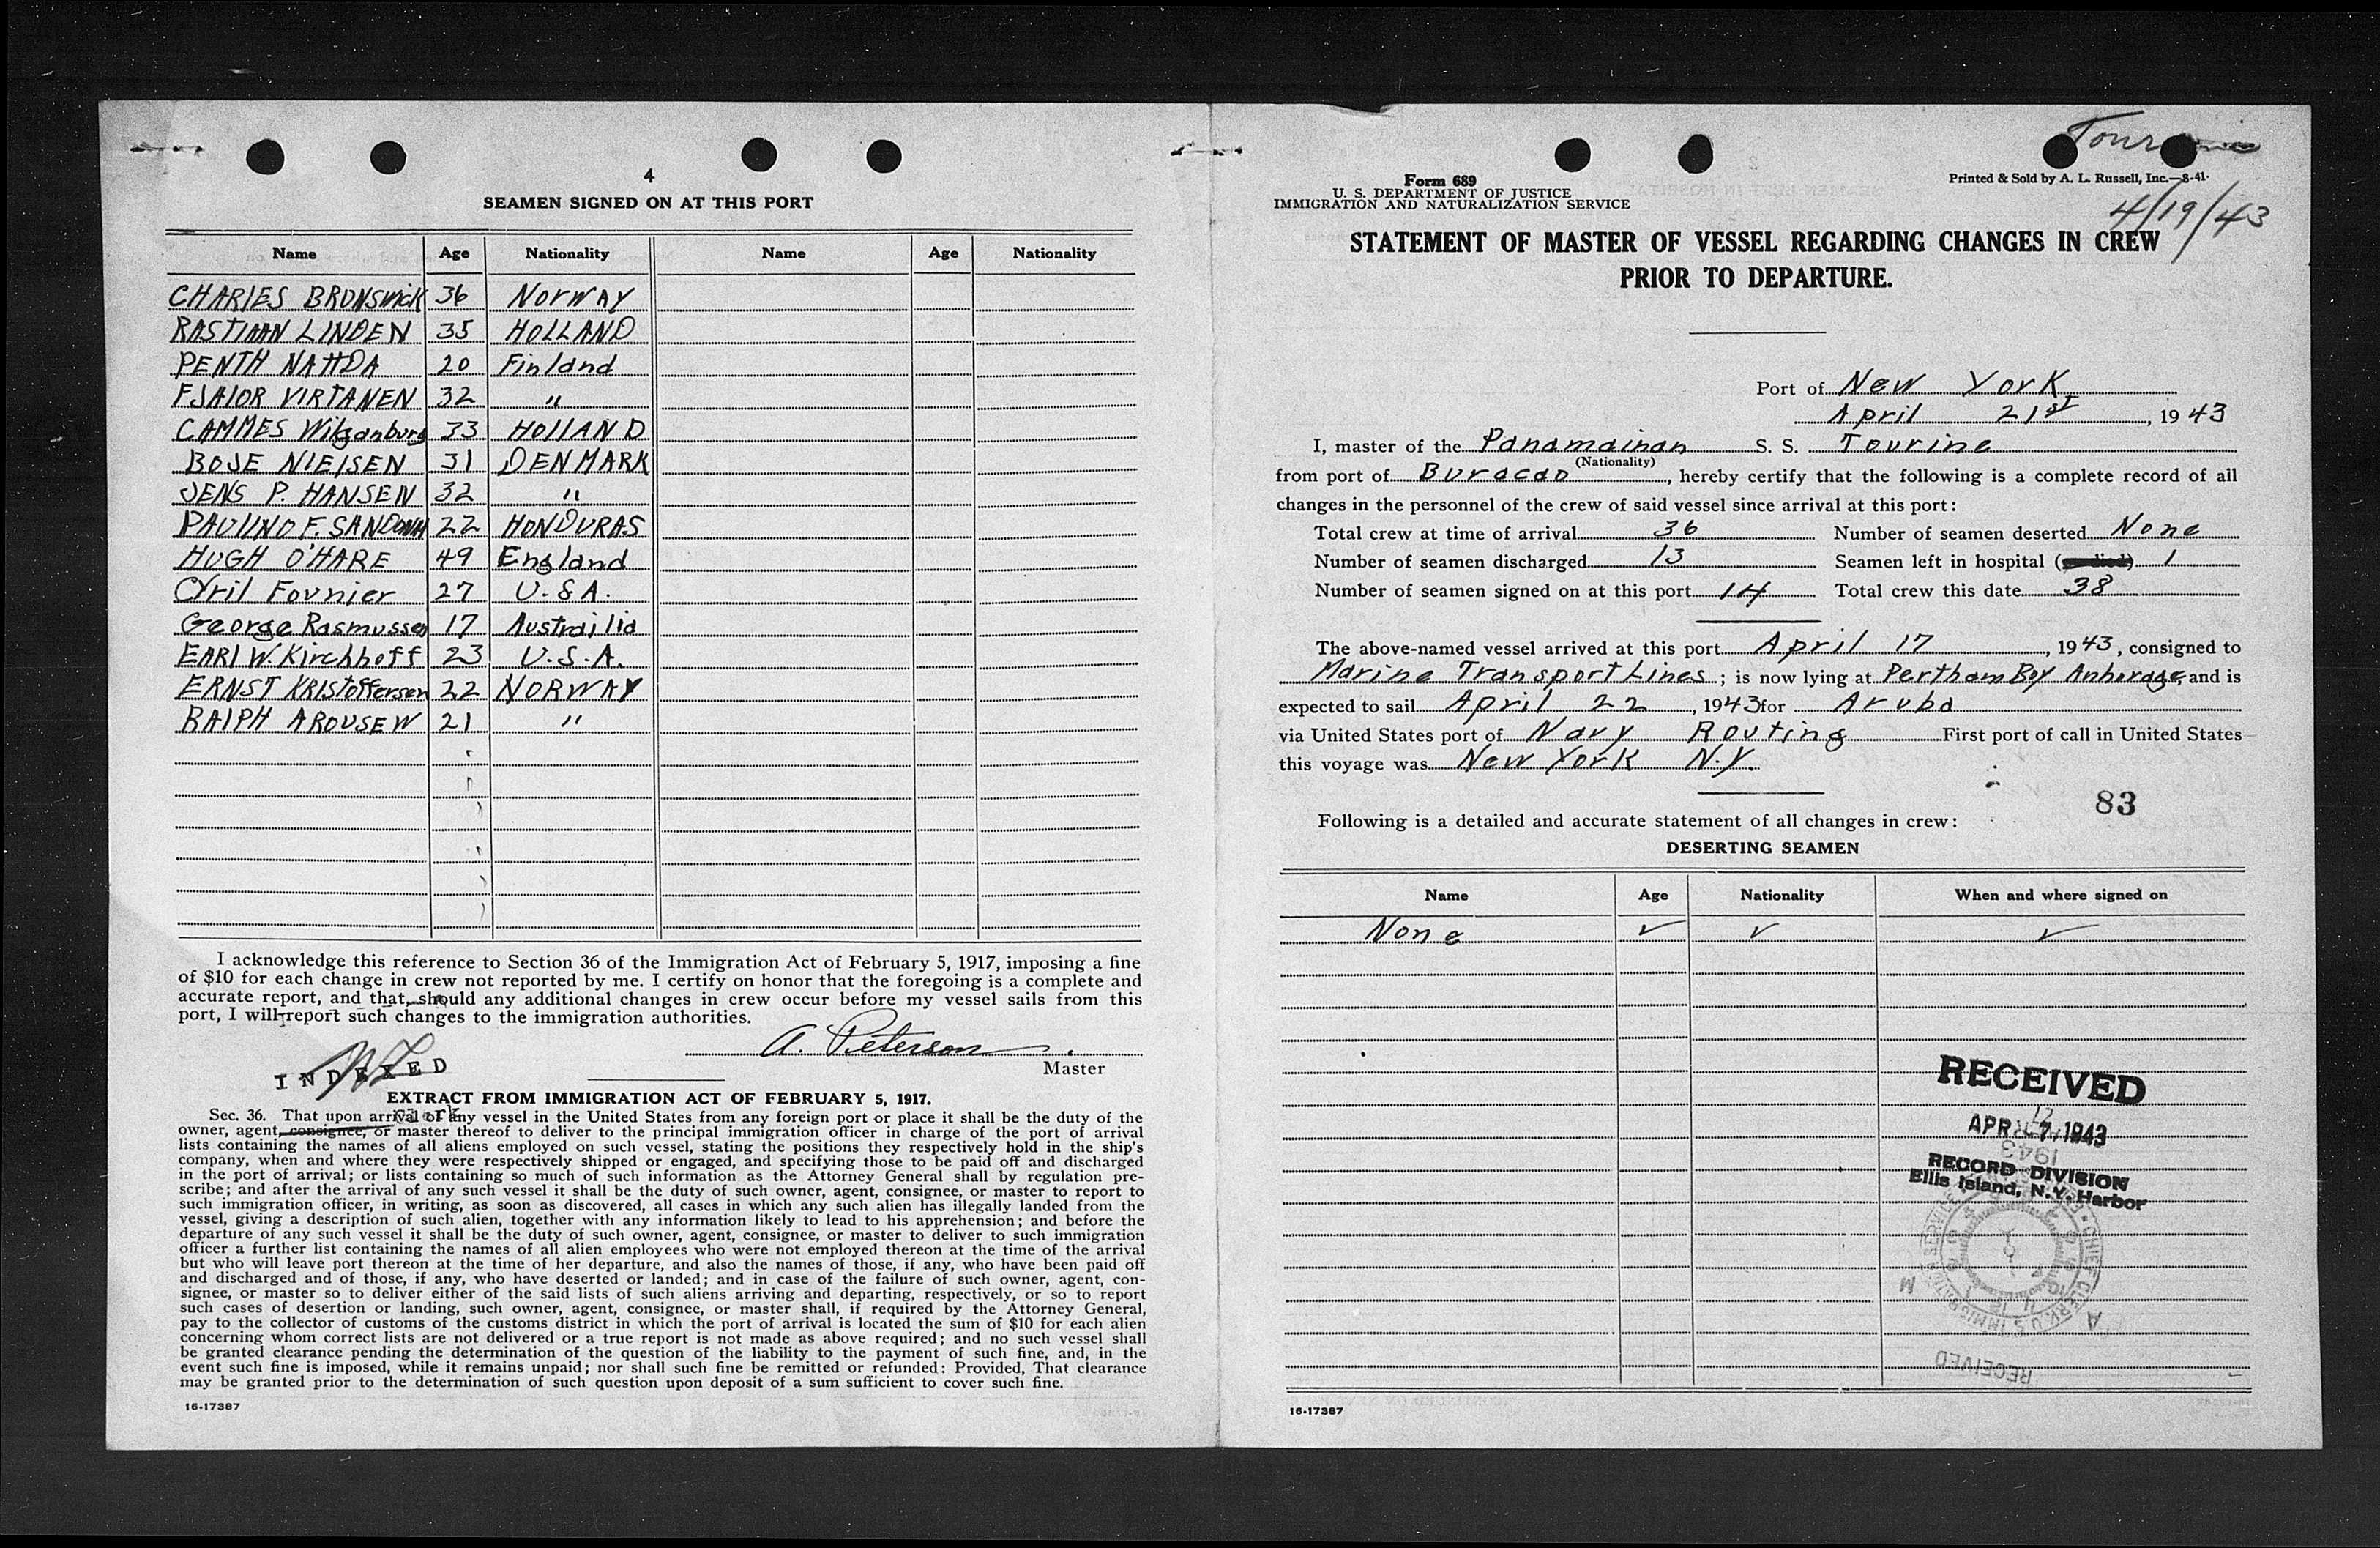 4
SEAMEN SIGNED ON AT THIS PORT
Name Age Nationality Name Age Nationality
CHARLES BRUNSWICK 36 NORWAY
RASTIAAN LINDEN 35 HOLLAND
PENTH NATTDA 20 Finland
FJALOR VIRTANEN 32 "
CAMMES Wilganburg 33 HOLLAND
BOJE NIELSEN 31 DENMARK
JENS P. HANSEN 32 "
PAULINO F. 22 HONDURAS
HUGH O'HARE 49 England
Cyril Fournier 27 U.S.A.
George Rasmussen 17 Austrailia
EARL W. Kirchhoff 23 U.S.A.
ERNST KRISTOFFERSEN 22 NORWAY
RALPH AROUSEW 21 "
I acknowledge this reference to Section 36 of the Immigration Act of February 5, 1917, imposing a fine
of $10 for each change in crew not reported by me. I certify on honor that the foregoing is a complete and
accurate report, and that, should any additional changes in crew occur before my vessel sails from this
port, I will report such changes to the immigration authorities.
A. Peterson
Master
INDEXED
EXTRACT FROM IMMIGRATION ACT OF FEBRUARY 5, 1917.
Sec. 36. That upon arrival of any vessel in the United States from any foreign port or place it shall be the duty of the
owner, agent, consignee, or master thereof to deliver to the principal immigration officer in charge of the port of arrival
lists containing the names of all aliens employed on such vessel, stating the positions they respectively hold in the ship's
company, when and where they were respectively shipped or engaged, and specifying those to be paid off and discharged
in the port of arrival; or lists containing so much of such information as the Attorney General shall by regulation pre-
scribe; and after the arrival of any such vessel it shall be the duty of such owner, agent, consignee, or master to report to
such immigration officer, in writing, as soon as discovered, all cases in which any such alien has illegally landed from the
vessel, giving a description of such alien, together with any information likely to lead to his apprehension; and before the
departure of any such vessel it shall be the duty of such owner, agent, consignee, or master to deliver to such immigration
officer a further list containing the names of all alien employees who were not employed thereon at the time of the arrival
but who will leave port thereon at the time of her departure, and also the names of those, if any, who have been paid off
and discharged and of those, if any, who have deserted or landed; and in case of the failure of such owner, agent, con-
signee, or master so to deliver either of the said lists of such aliens arriving and departing, respectively, or so to report
such cases of desertion or landing, such owner, agent, consignee, or master shall, if required by the Attorney General,
pay to the collector of customs of the customs district in which the port of arrival is located the sum of $10 for each alien
concerning whom correct lists are not delivered or a true report is not made as above required; and no such vessel shall
be granted clearance pending the determination of the question of the liability to the payment of such fine, and, in the
event such fine is imposed, while it remains unpaid; nor shall such fine be remitted or refunded: Provided, That clearance
may be granted prior to the determination of such question upon deposit of a sum sufficient to cover such fine.
16-17387
Form 689
U. S. DEPARTMENT OF JUSTICE
IMMIGRATION AND NATURALIZATION SERVICE
Printed & Sold by A. L. Russell, Inc.—8-41
4/19/43
STATEMENT OF MASTER OF VESSEL REGARDING CHANGES IN CREW
PRIOR TO DEPARTURE.
Port of New York
April 21st, 1943
I, master of the Panamainan S. S. Tourine
(Nationality)
from port of Buracao, hereby certify that the following is a complete record of all
changes in the personnel of the crew of said vessel since arrival at this port:
Total crew at time of arrival 36 Number of seamen deserted None
Number of seamen discharged 13 Seamen left in hospital (or died) 1
Number of seamen signed on at this port 14 Total crew this date 38
The above-named vessel arrived at this port April 17, 1943, consigned to
Marine Transport Lines; is now lying at Pertham Boy Anherage, and is
expected to sail April 22, 1943 for Aruba
via United States port of Navy Routing First port of call in United States
this voyage was New York N.Y.
83
Following is a detailed and accurate statement of all changes in crew:
DESERTING SEAMEN
Name Age Nationality When and where signed on
None ✓ ✓ ✓
RECEIVED
APR 27 1943
RECORD DIVISION
Ellis Island, N.Y. Harbor
RECEIVED
16-17387